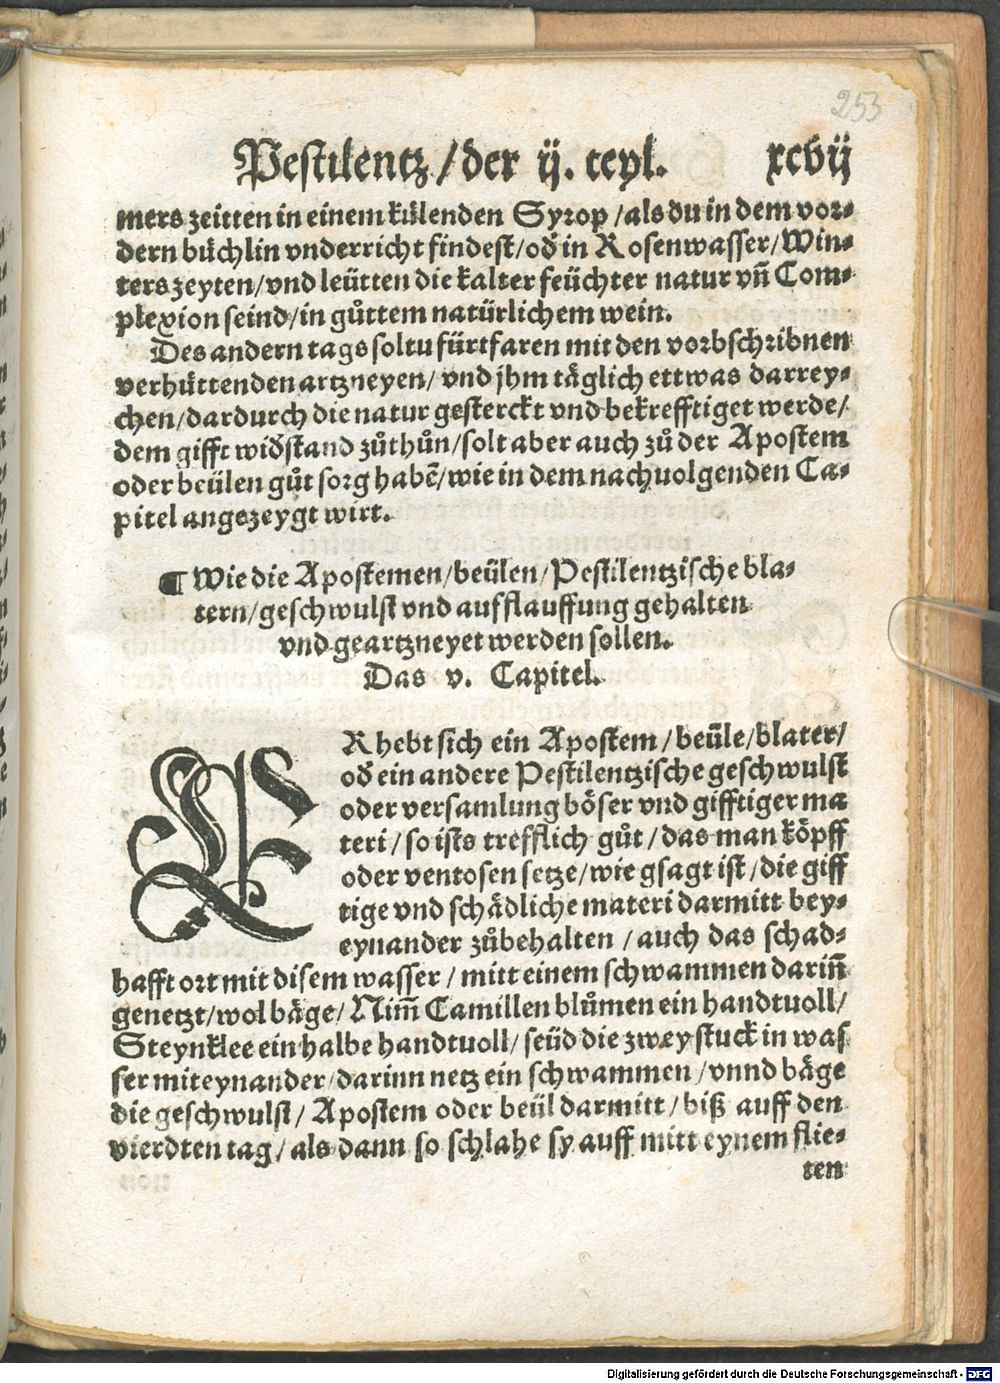 253
Pestilentz / der ij. teyl. xcvij
mers zeitten in einem külenden Syrop / als du in dem vor⸗
dern büchlin vnderricht findest / oď in Rosenwasser / Win⸗
ters zeyten / vnd leütten die kalter feüchter natur vñ Com⸗
plexion seind / in gůttem natürlichem wein.
Des andern tags soltu fürtfaren mit den vorbschribnen
verhüttenden artzneyen / vnd jhm täglich ettwas darrey⸗
chen / dardurch die natur gesterckt vnd bekrefftiget werde /
dem gifft wiďstand zůthůn / solt aber auch zů der Apostem
oder beülen gůt sorg habẽ / wie in dem nachuolgenden Ca⸗
pitel angezeygt wirt.
¶ Wie die Apostemen / beülen / Pestilentzische bla⸗
tern / geschwulst vnd aufflauffung gehalten
vnd geartzneyet werden sollen.
Das v. Capitel.
ERhebt sich ein Apostem / beüle / blater /
oď ein andere Pestilentzische geschwulst
oder versamlung böser vnd gifftiger ma
teri / so ists trefflich gůt / das man köpff
oder ventosen setze / wie gsagt ist / die giff
tige vnd schädliche materi darmitt bey⸗
eynander zůbehalten / auch das schad⸗
hafft ort mit disem wasser / mitt einem schwammen dariñ
genetzt / wol bäge / Nim̃ Camillen blůmen ein handtuoll /
Steynklee ein halbe handtuoll / seüd die zwey stuck in was
ser miteynander / darinn netz ein schwammen / vnnd bäge
die geschwulst / Apostem oder beül darmitt / biß auff den
vierdten tag / als dann so schlahe sy auff mitt eynem flie⸗
ten
Digitalisierung gefördert durch die Deutsche Forschungsgemeinschaft - DFG